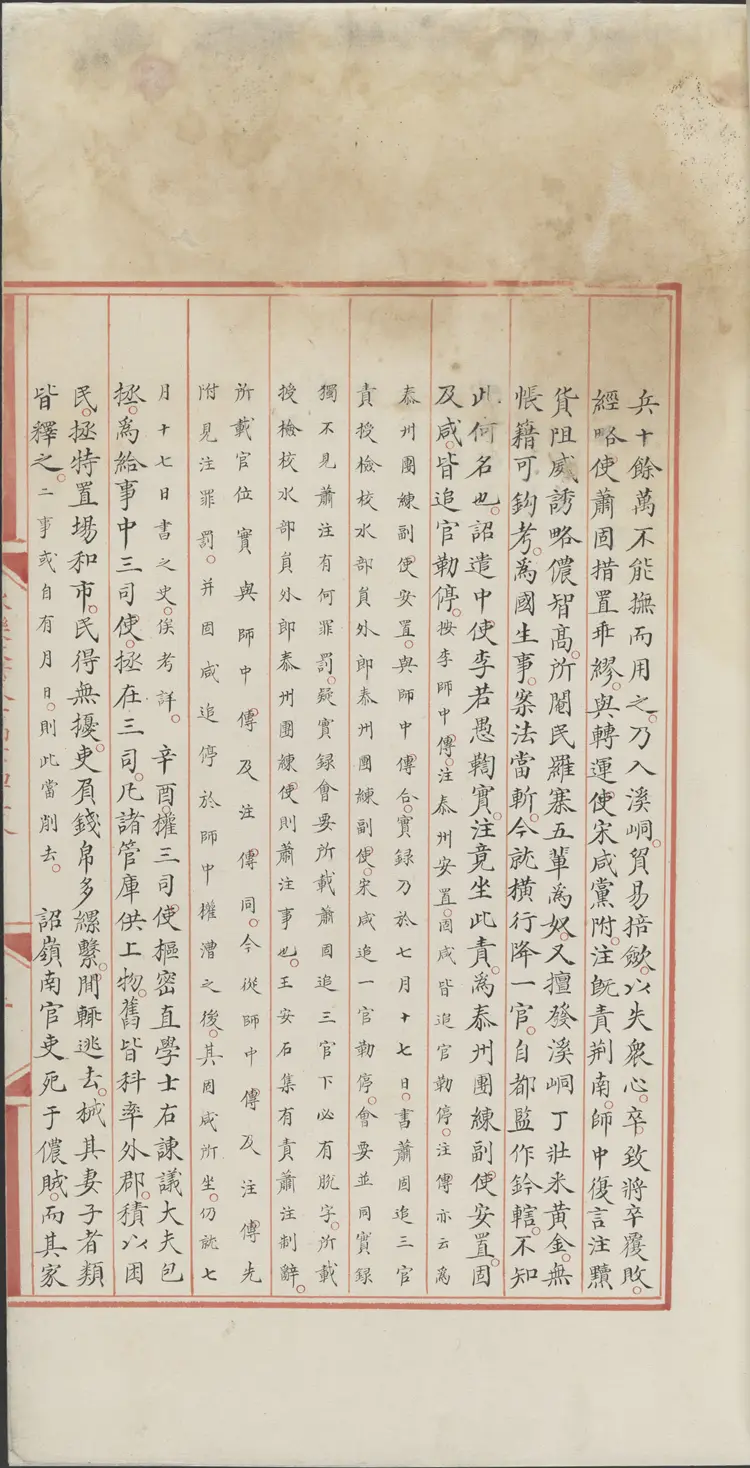 兵十餘萬不能撫而用之。乃入溪峒。貿易掊歛。以失衆心。卒致將卒覆敗。
經略使蕭固措置乖繆。與轉運使宋咸黨附。注既責荆南。師中復言注黷
貨阻威誘略儂智高。所閹民羅寨五輩為奴。又擅發溪峒丁壯采黃金。無
帳籍可鈎考。為國生事。案法當斬。今就横行降一官。自都監作鈐轄。不知
此何名也。詔遣中使李若愚鞫實。注竟坐此責。為泰州團練副使安置。固
及咸。皆追官勒停。按李師中傳。注泰州安置。固咸皆追官勒停。注傳亦云為
泰州團練副使安置。與師中傳合。實録乃於七月十七日。書蕭固追三官
責授檢校水部員外郎泰州團練副使。宋咸追一官勒停。會要並同實録
獨不見蕭注有何罪罰。疑實録會要所載蕭固追三官下必有脫字。所載
授檢校水部員外郎泰州團練使則蕭注事也。王安石集有責蕭注制辭。
所載官位實與師中傳及注傳同。今從師中傳及注傳先
附見注罪罰。并固咸追停於師中權漕之後。其固咸所坐。仍就七
月十七日書之史。俟考詳。辛酉。權三司使樞密直學士右諫議大夫包
拯。為給事中三司使。拯在三司。凡諸管庫供上物。舊皆科率外郡。積以困
民。拯特置場和市。民得無擾。吏負錢帛多縲繫。間輒逃去。械其妻子者類
皆釋之。二事或自有月日。則此當削去。詔嶺南官吏死于儂賊。而其家